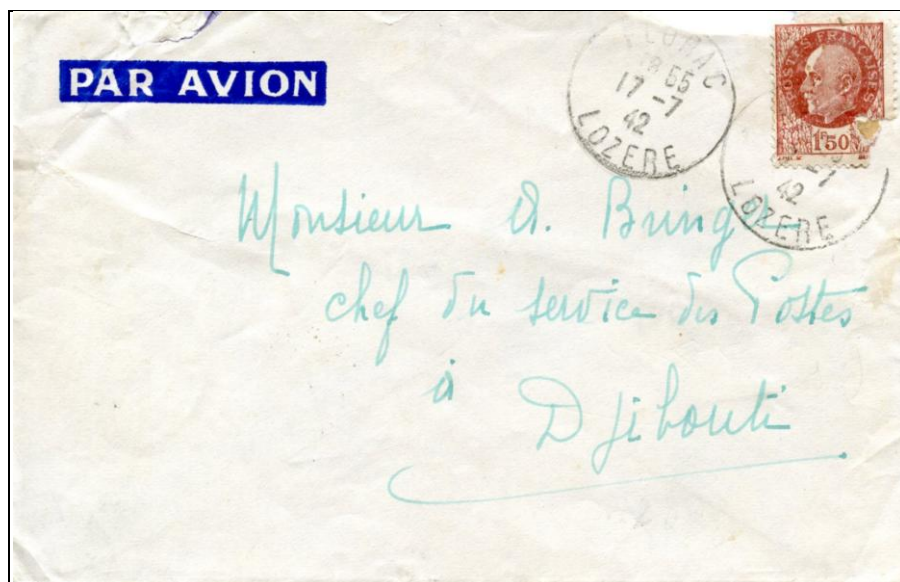 PAR AVION
FLORAC
18 55
17 -7
42
LOZERE
POSTES FRANÇAISES
1F50
-7
42
LOZERE
Monsieur A.
chef du service des Postes
à
Djibouti